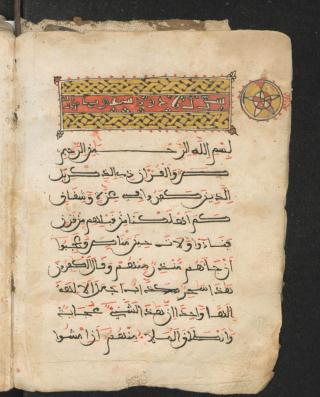 بسم الله الرحمن الرحيم
ص والقرءان ذي الذكر بل
الذين كفروا في عزة وشقاق
كم اهلكنا من قبلهم من قرن
فنادوا ولات حين مناص وعجبوا
أن جاءهم منذر منهم وقال الكفرون
هذا سحر كذاب أجعل الالهة
الها واحدا إن هذا لشيء عجاب
وانطلق الملأ منهم أن امشوا